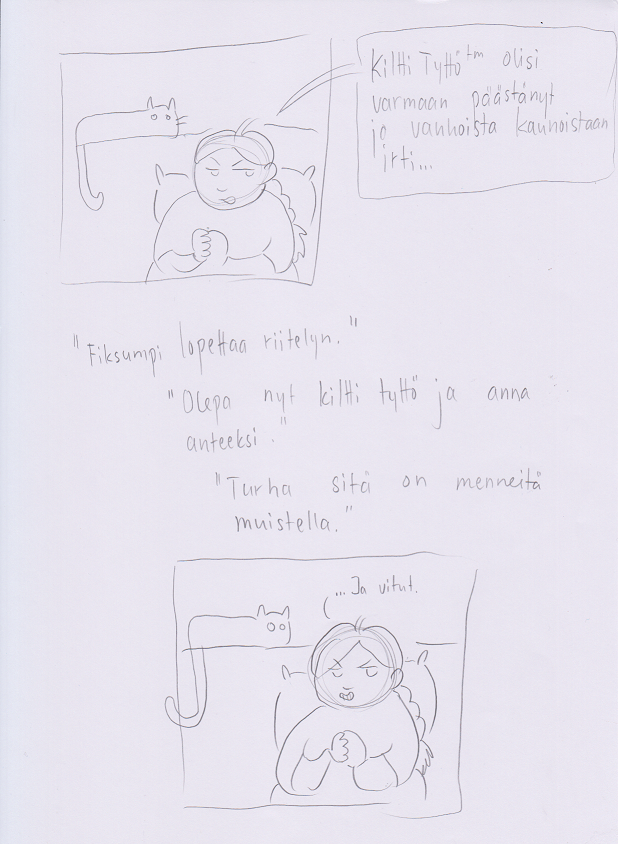 Kiltti Tyttö™ olisi
varmaan päästänyt
jo vanhoista kaunoistaan
irti...
"Fiksumpi lopettaa riitelyn."
"Olepa nyt kiltti tyttö ja anna
anteeksi."
"Turha sitä on menneitä
muistella."
...Ja vitut.